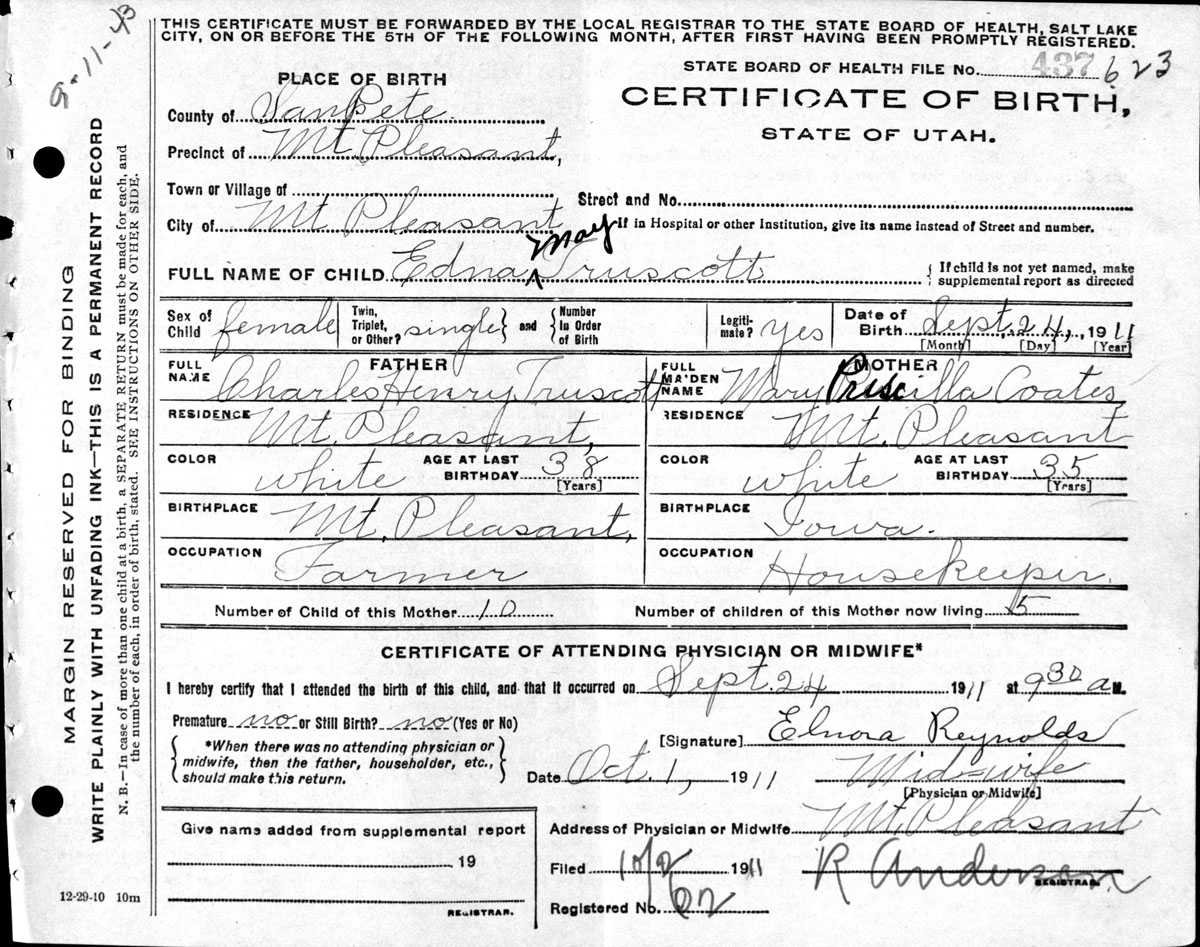 9-11-43
THIS CERTIFICATE MUST BE FORWARDED BY THE LOCAL REGISTRAR TO THE STATE BOARD OF HEALTH, SALT LAKE
CITY, ON OR BEFORE THE 5TH OF THE FOLLOWING MONTH, AFTER FIRST HAVING BEEN PROMPTLY REGISTERED.
MARGIN RESERVED FOR BINDING
WRITE PLAINLY WITH UNFADING INK—THIS IS A PERMANENT RECORD
N. B.—In case of more than one child at a birth, a SEPARATE RETURN must be made for each, and
the number of each, in order of birth, stated. SEE INSTRUCTIONS ON OTHER SIDE.
PLACE OF BIRTH
STATE BOARD OF HEALTH FILE No. 437 623
CERTIFICATE OF BIRTH,
STATE OF UTAH.
County of SanPete.
Precinct of Mt. Pleasant,
Town or Village of
Street and No.
City of Mt Pleasant
If in Hospital or other Institution, give its name instead of Street and number.
May
FULL NAME OF CHILD Edna Truscott
{ If child is not yet named, make
supplemental report as directed
Sex of Child female
Twin, Triplet, or Other? single } and { Number In Order of Birth
Legiti-mate? yes
Date of Birth Sept. 24, 1911
[Month] [Day] [Year]
FATHER
MOTHER
FULL NAME Charles Henry Truscott
FULL MAIDEN NAME Mary Priscilla Coates
RESIDENCE Mt. Pleasant,
RESIDENCE Mt. Pleasant
COLOR white AGE AT LAST BIRTHDAY 38 [Years]
COLOR white AGE AT LAST BIRTHDAY 35 [Years]
BIRTHPLACE Mt. Pleasant,
BIRTHPLACE Iowa.
OCCUPATION Farmer
OCCUPATION Housekeeper.
Number of Child of this Mother 10
Number of children of this Mother now living 5
CERTIFICATE OF ATTENDING PHYSICIAN OR MIDWIFE*
I hereby certify that I attended the birth of this child, and that it occurred on Sept. 24 1911 at 9 30 a M.
Premature no or Still Birth? no (Yes or No)
{ *When there was no attending physician or
midwife, then the father, householder, etc.,
should make this return. }
[Signature] Elnora Reynolds
Date Oct. 1, 1911
Mid=wife
[Physician or Midwife]
Give name added from supplemental report
19
REGISTRAR.
Address of Physician or Midwife Mt. Pleasant
Filed 10/2 1911
R Anderson
REGISTRAR.
Registered No.
12-29-10 10m